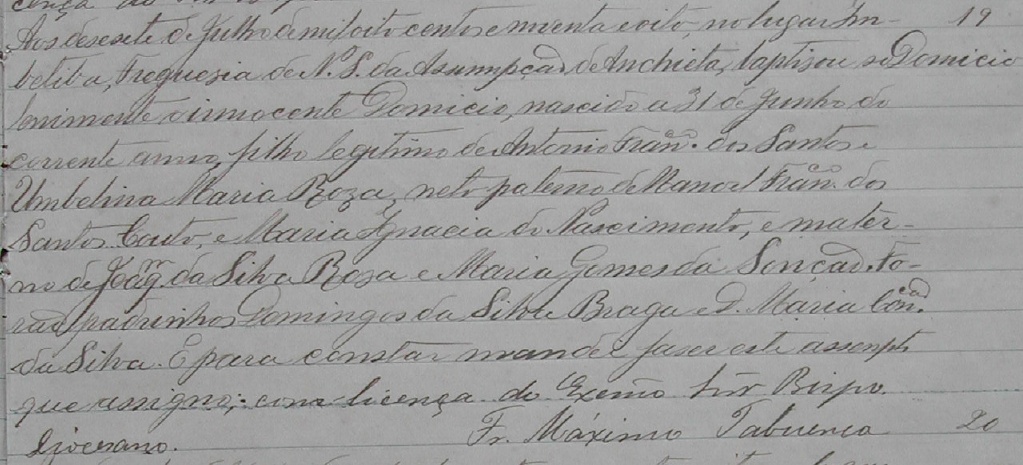 Aos desesete de Julho de mil oito centos e noventa e oito, no lugar Im- 19
betiba, Freguesia de N. S. da Assumpção de Anchieta, baptisou se Domicio
lenimente o innocente Domicio, nascido a 31 de Junho do
corrente anno, filho legitimo de Antonio Fran.co dos Santos e
Umbelina Maria Roza, neto paterno de Manoel Fran.co dos
Santos Couto, e Maria Ignacia do Nascimento, e mater-
no de Joaq.m da Silva Roza e Maria Gomes da Fo-
rão padrinhos Domingos da Silva Braga e D. Maria Con.cão
da Silva. E para constar mandei faser este assento
que assigno; com licença do Exemo Snr Bispo
Diocesano. Fr. Máximo Tabuenca 20